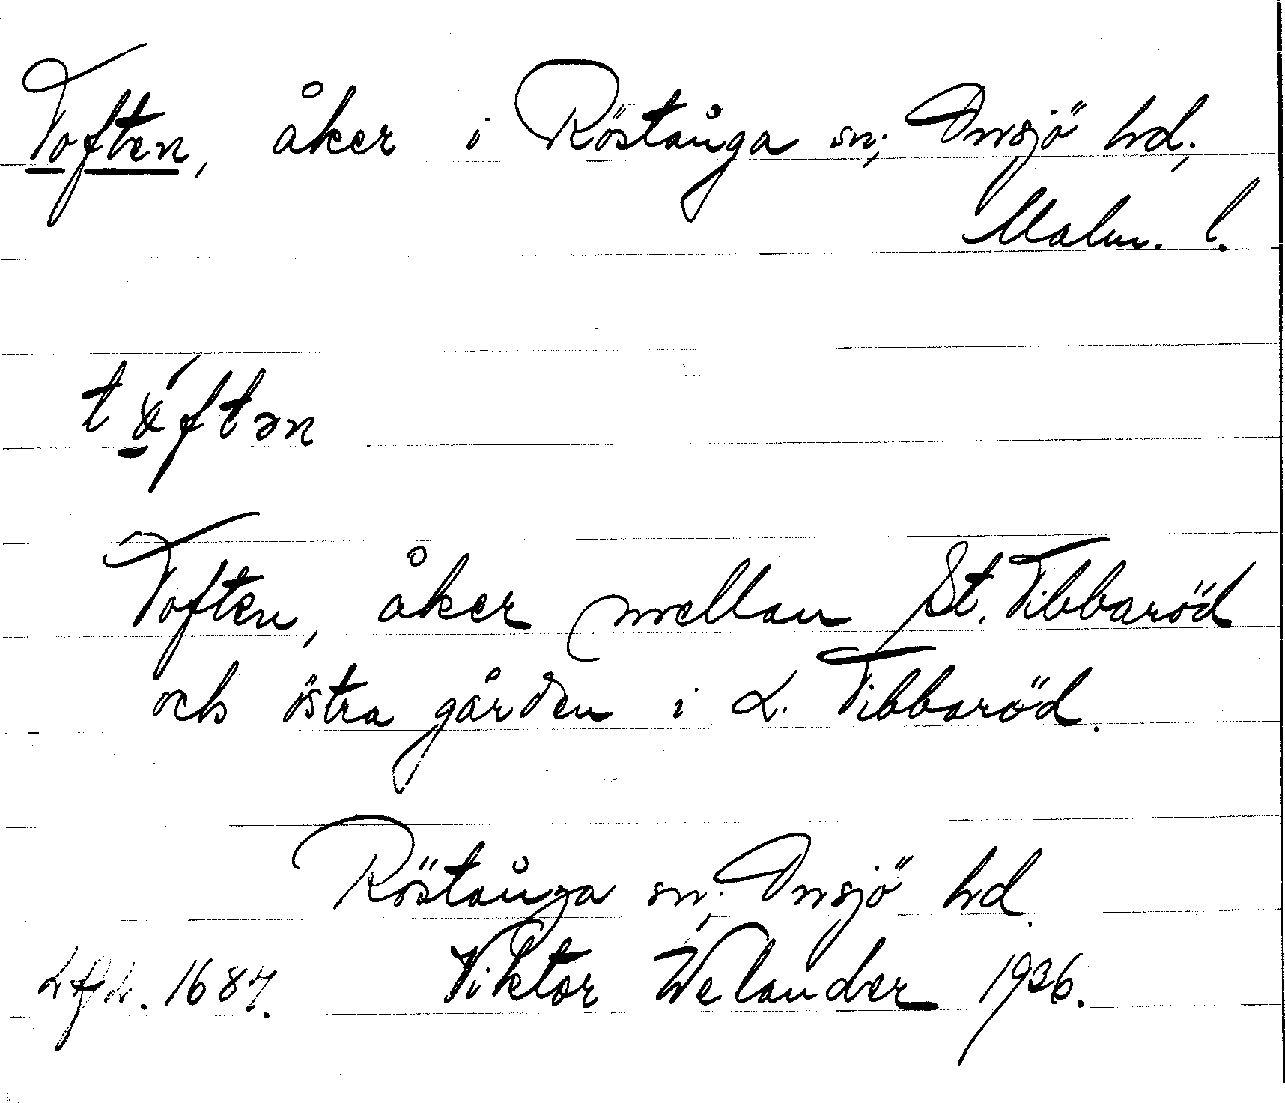 Toften, åker i Röstånga sn, Onsjö hd,
Malm. l.
Toften, åker mellan St. Tibbaröd
och östra gården i L. Tibbaröd.
Röstånga sn, Onsjö hd.
1687. Viktor Welander 1936.